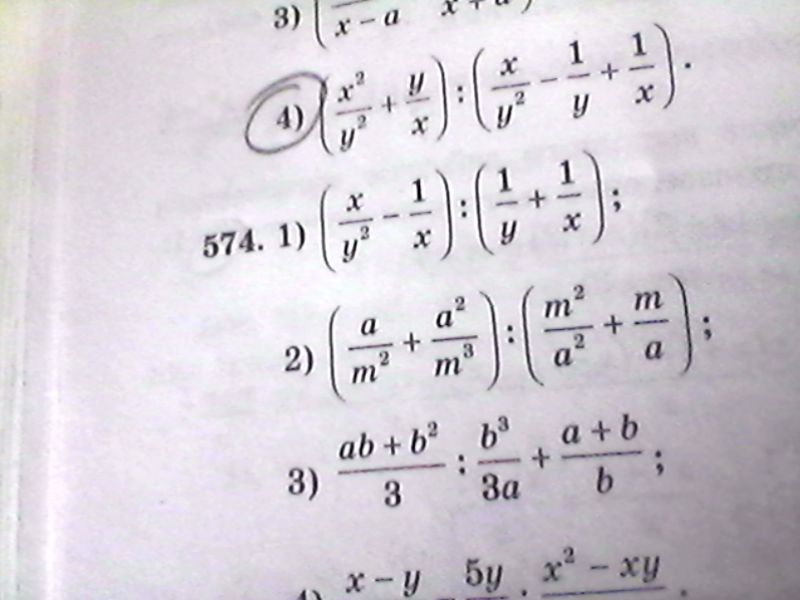 3) ( / x − a x + a )
4) (x²/y² + y/x) : (x/y² − 1/y + 1/x).
574. 1) (x/y² − 1/x) : (1/y + 1/x);
2) (a/m² + a²/m³) : (m²/a² + m/a);
3) (ab + b²)/3 : b³/3a + (a + b)/b;
x − y 5y x² − xy